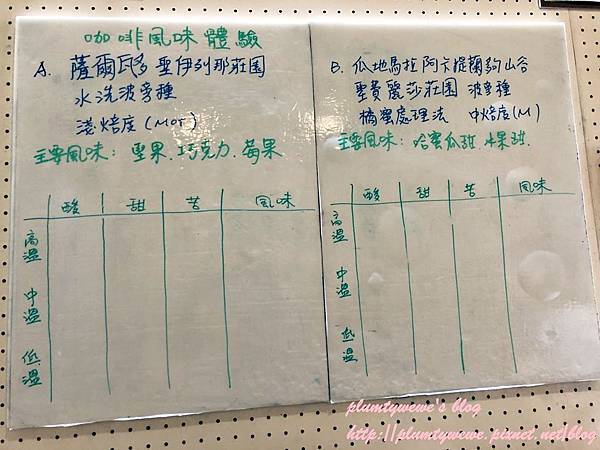 咖啡風味體驗
A. 薩爾瓦多 聖伊列那莊園
水洗波旁種
淺焙度(MOT)
主要風味：堅果.巧克力.莓果
酸 甜 苦 風味
高溫
中溫
低溫
B. 瓜地馬拉 阿卡提蘭夠山谷
聖費麗莎莊園 波旁種
橘蜜處理法 中焙度(M)
主要風味：哈蜜瓜甜.水果甜.
酸 甜 苦 風味
高溫
中溫
低溫
plumtywewe's blog
http://plumtywewe.pixnet.net/blog